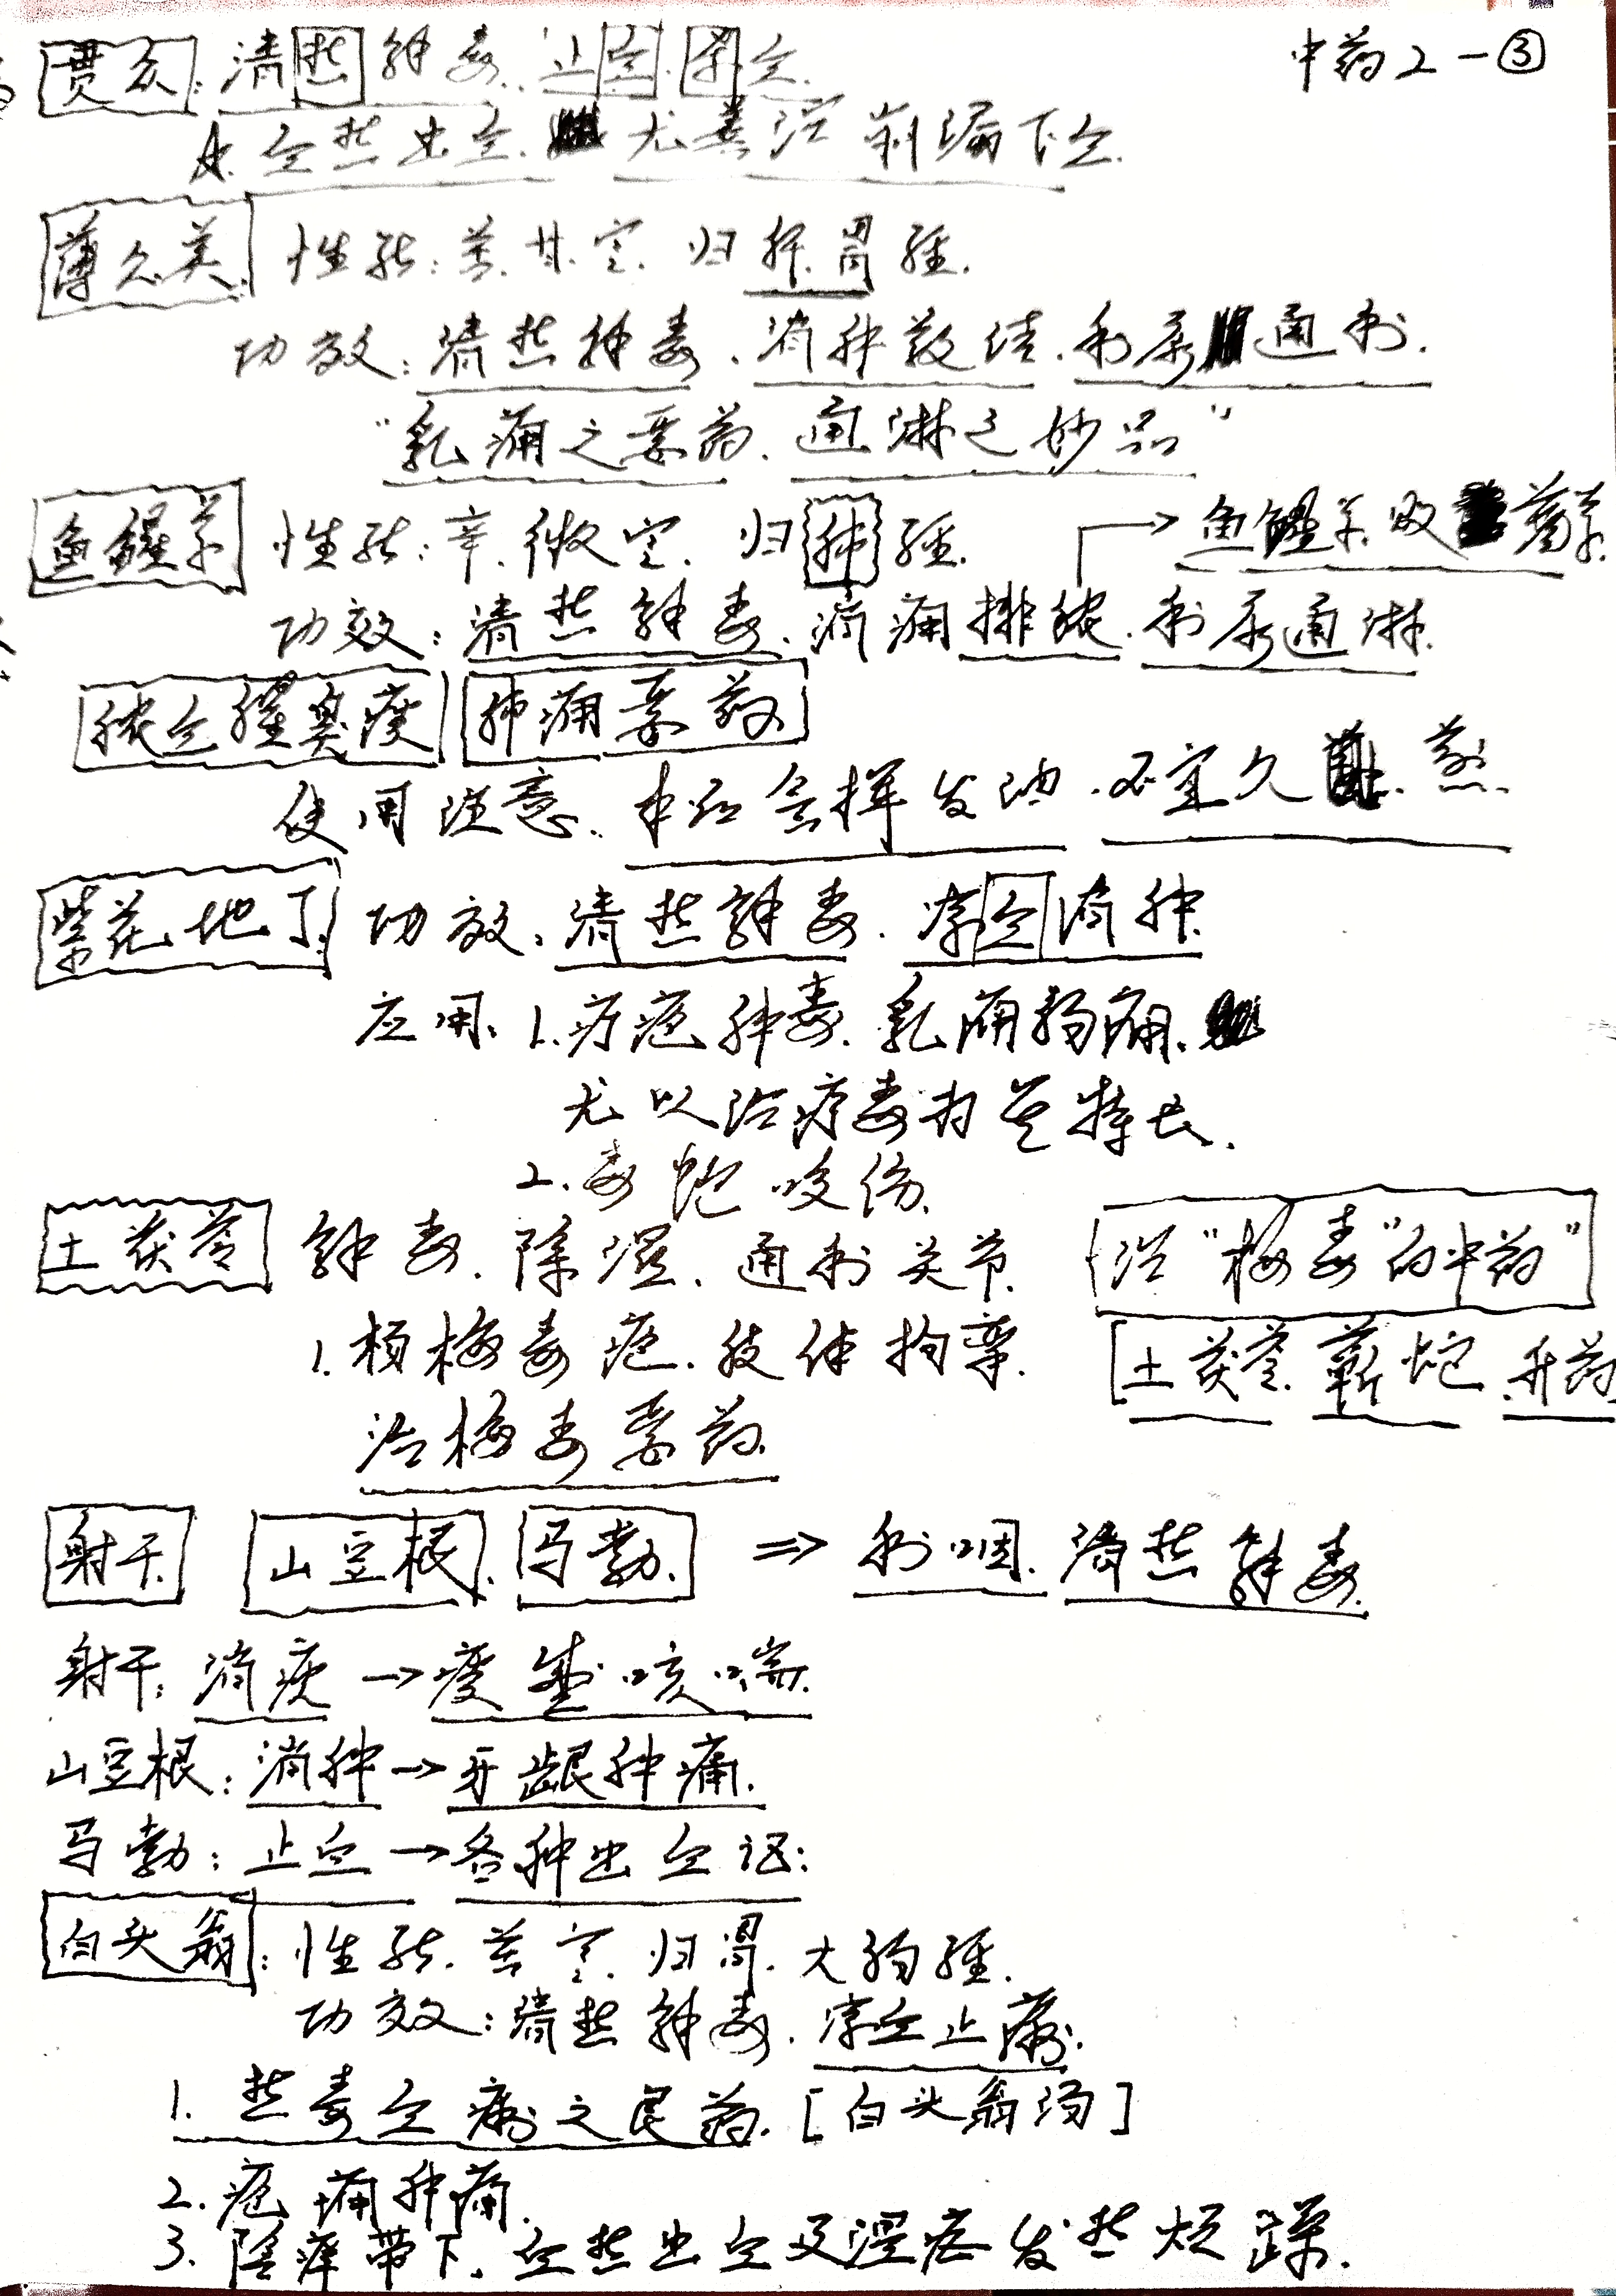 中药2-③
贯众：清热解毒、止血、杀虫.
A.血热出血.尤善治崩漏下血.
蒲公英：性能：苦.甘.寒.归肝.胃经.
功效：清热解毒、消肿散结.利尿通淋.
“乳痈之要药.通淋之妙品”
鱼腥草 性能：辛.微寒.归肺经. →鱼腥草.败酱草.
功效：清热解毒、消痈排脓.利尿通淋.
脓血腥臭痰 肺痈要药
使用注意：本品含挥发油.不宜久煎.
紫花地丁：功效：清热解毒.凉血消肿.
应用：1.疔疮肿毒.乳痈肠痈.
尤以治疗毒为其特长.
2.毒蛇咬伤.
土茯苓 解毒.除湿.通利关节. 治“梅毒”的中药”
1.杨梅毒疮.肢体拘挛. [土茯苓.蕲蛇.升药
治梅毒要药.
射干.山豆根.马勃. ⇒ 利咽.清热解毒.
射干：消痰→痰壅咳喘.
山豆根：消肿→牙龈肿痛.
马勃：止血→各种出血证：
白头翁：性能.苦寒.归胃.大肠经.
功效：清热解毒.凉血止痢.
1.热毒血痢之良药.[白头翁汤]
2.疮痈肿痛.
3.阴痒带下.血热出血及湿疟发热烦躁.